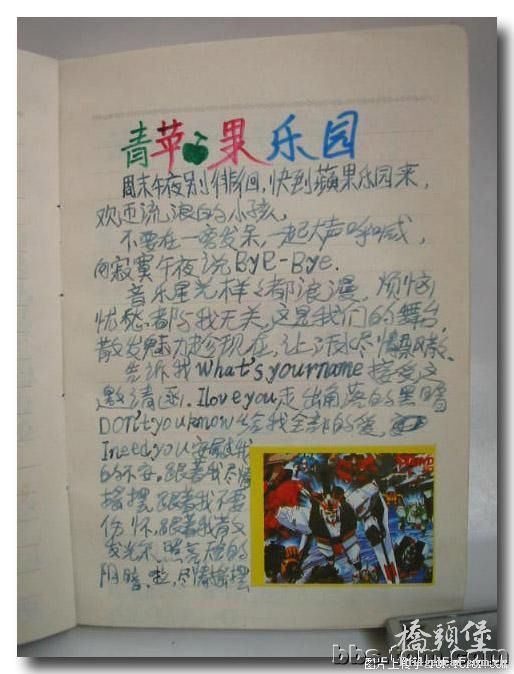 青苹果乐园
周末午夜别徘徊,快到蘋果乐园来,
欢迎流浪的小孩,
不要在一旁发呆,一起大声呼喊,
向寂寞午夜说BYE-BYE.
音乐星光样样都浪漫,烦恼
忧愁都与我无关,这是我们的舞台,
散发魅力趁现在,让汗水尽情
告诉我What's your name 接受
邀请函.I love you走出角落的黑暗
DON't you know 给我全部的爱,
I need you 安慰我
的不安.跟着我尽情
摇摆 跟着我不要
伤怀.跟着我
发光 照亮你的
阴暗 尽情摇摆
橋頭堡